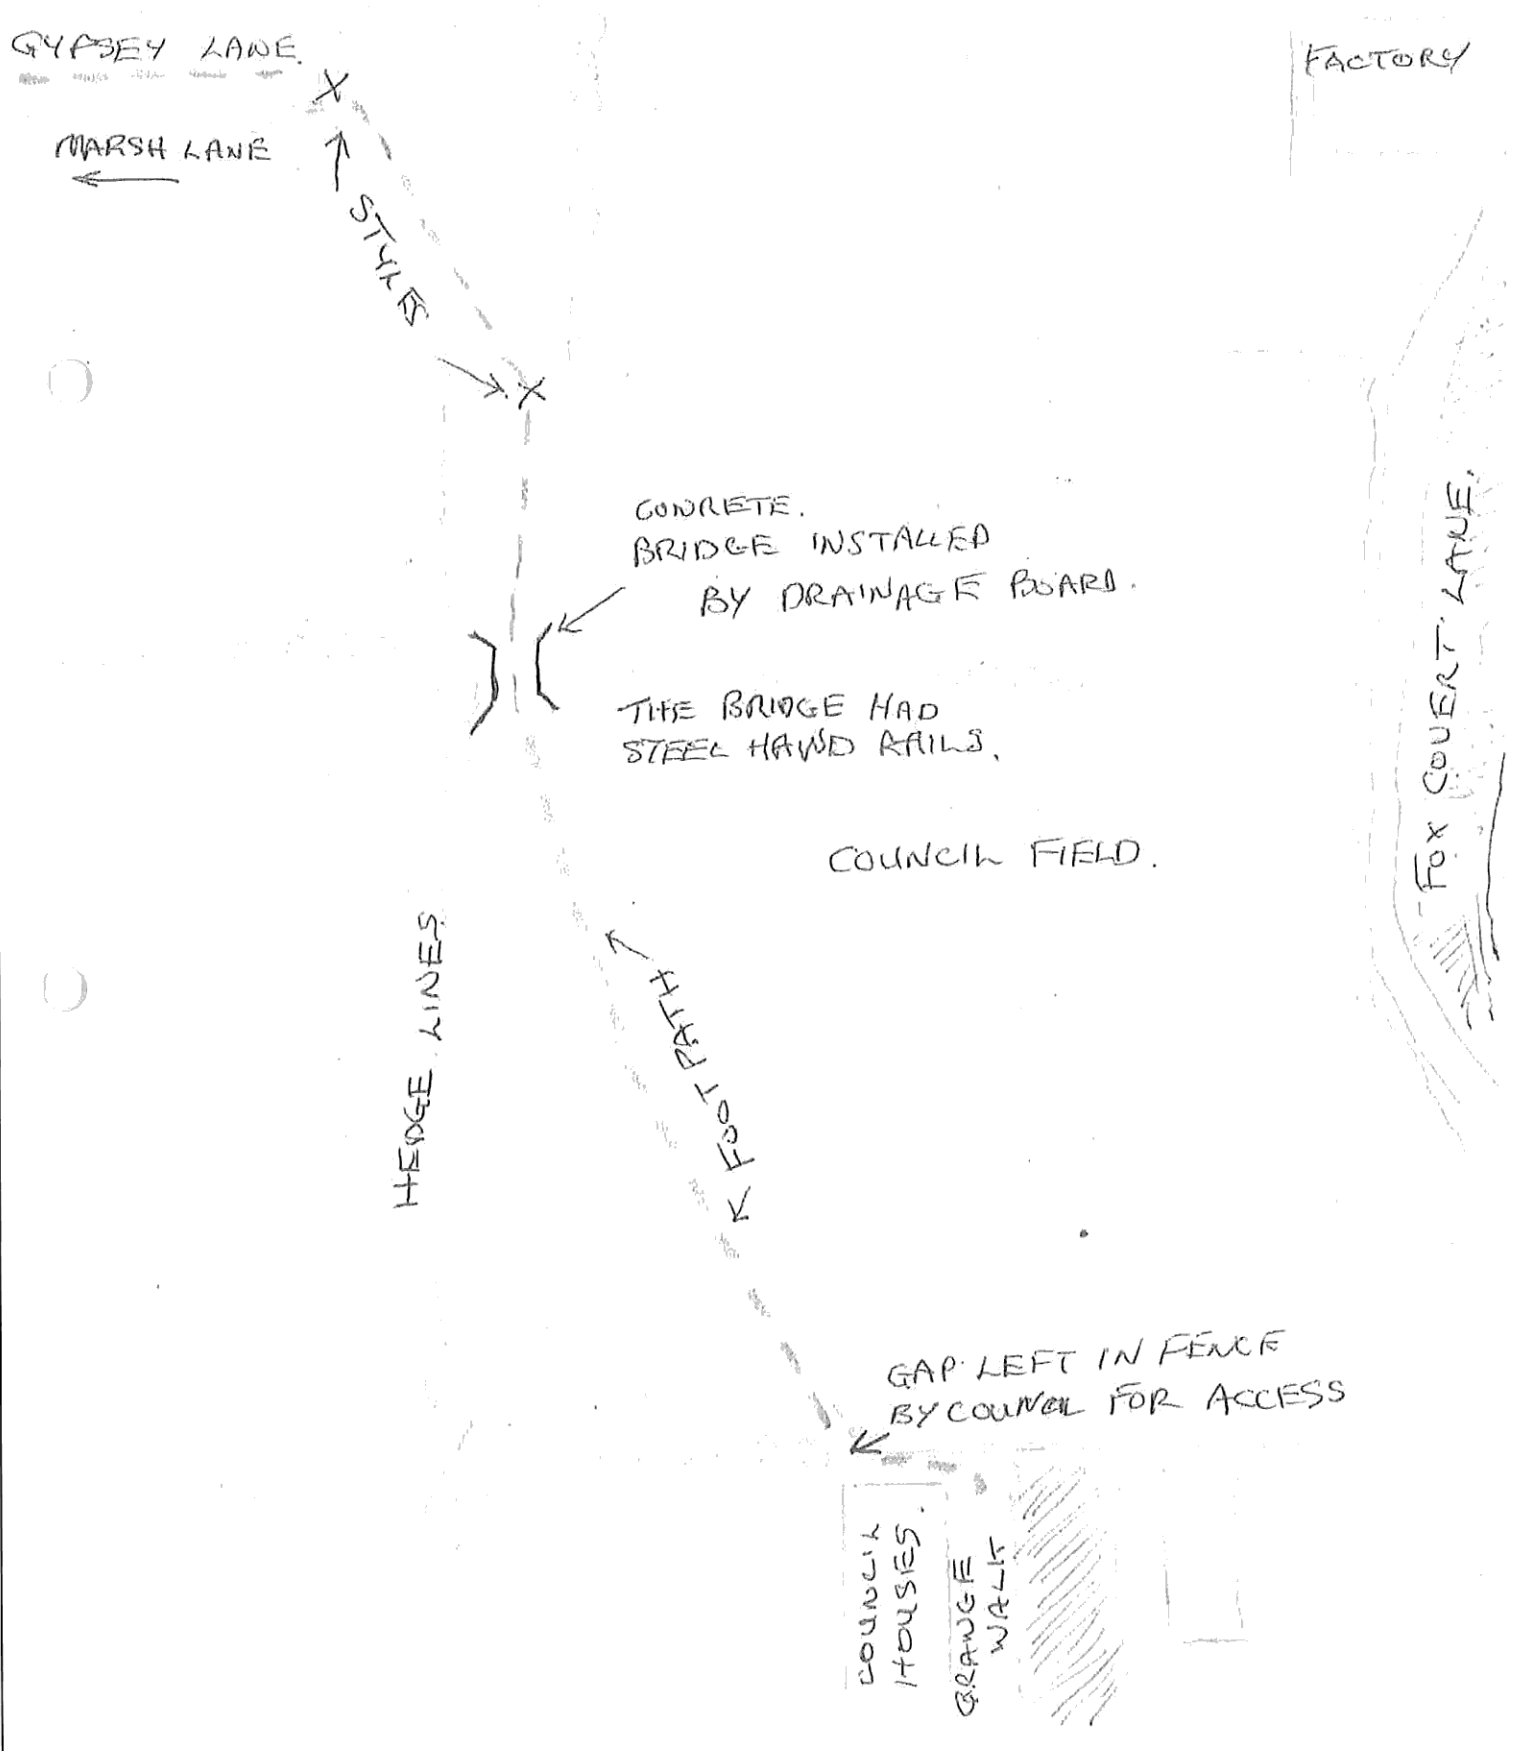 GYPSEY LANE.
FACTORY
MARSH LANE
STYLES
CONRETE.
BRIDGE INSTALLED
BY DRAINAGE BOARD.
THE BRIDGE HAD
STEEL HAND RAILS.
FOX COVERT LANE.
COUNCIL FIELD.
HEDGE LINES.
FOOTPATH
GAP LEFT IN FENCE
BY COUNCIL FOR ACCESS
COUNCIL
HOUSES.
GRANGE
WALK